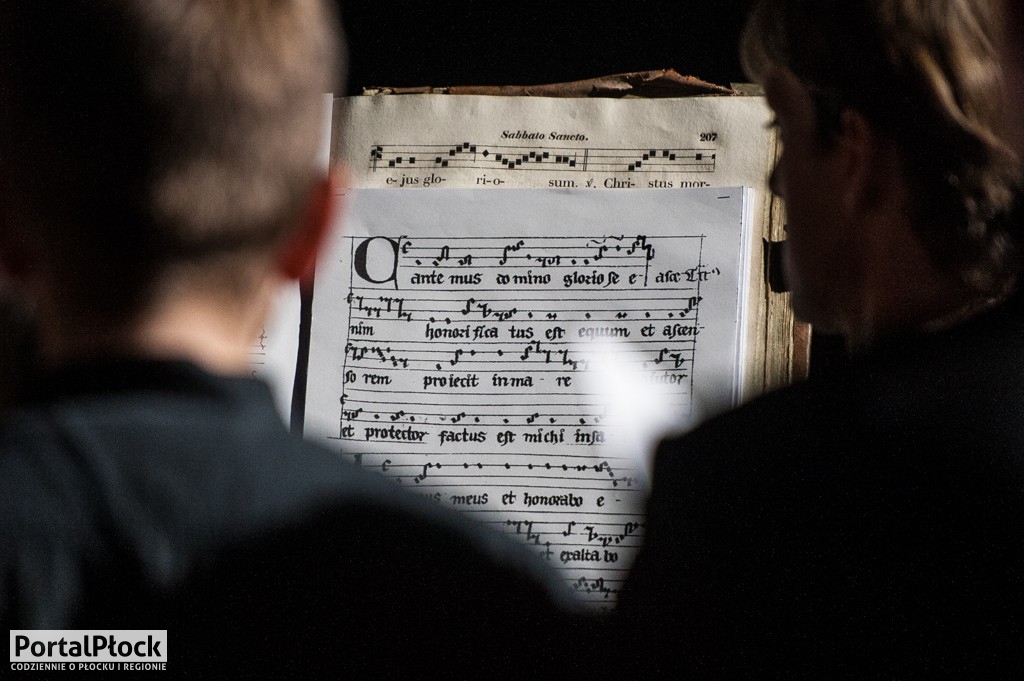 Sabbato Sancto. 207
e- jus glo- ri-o- sum. ℣. Chri- stus mor-
Cante mus do mino gloriose e-
nim honorifica tus est equum et ascen-
so rem proiecit in ma - re
et protector factus est michi
meus et honorabo e -
et exalta bo
PortalPłock
CODZIENNIE O PŁOCKU I REGIONIE